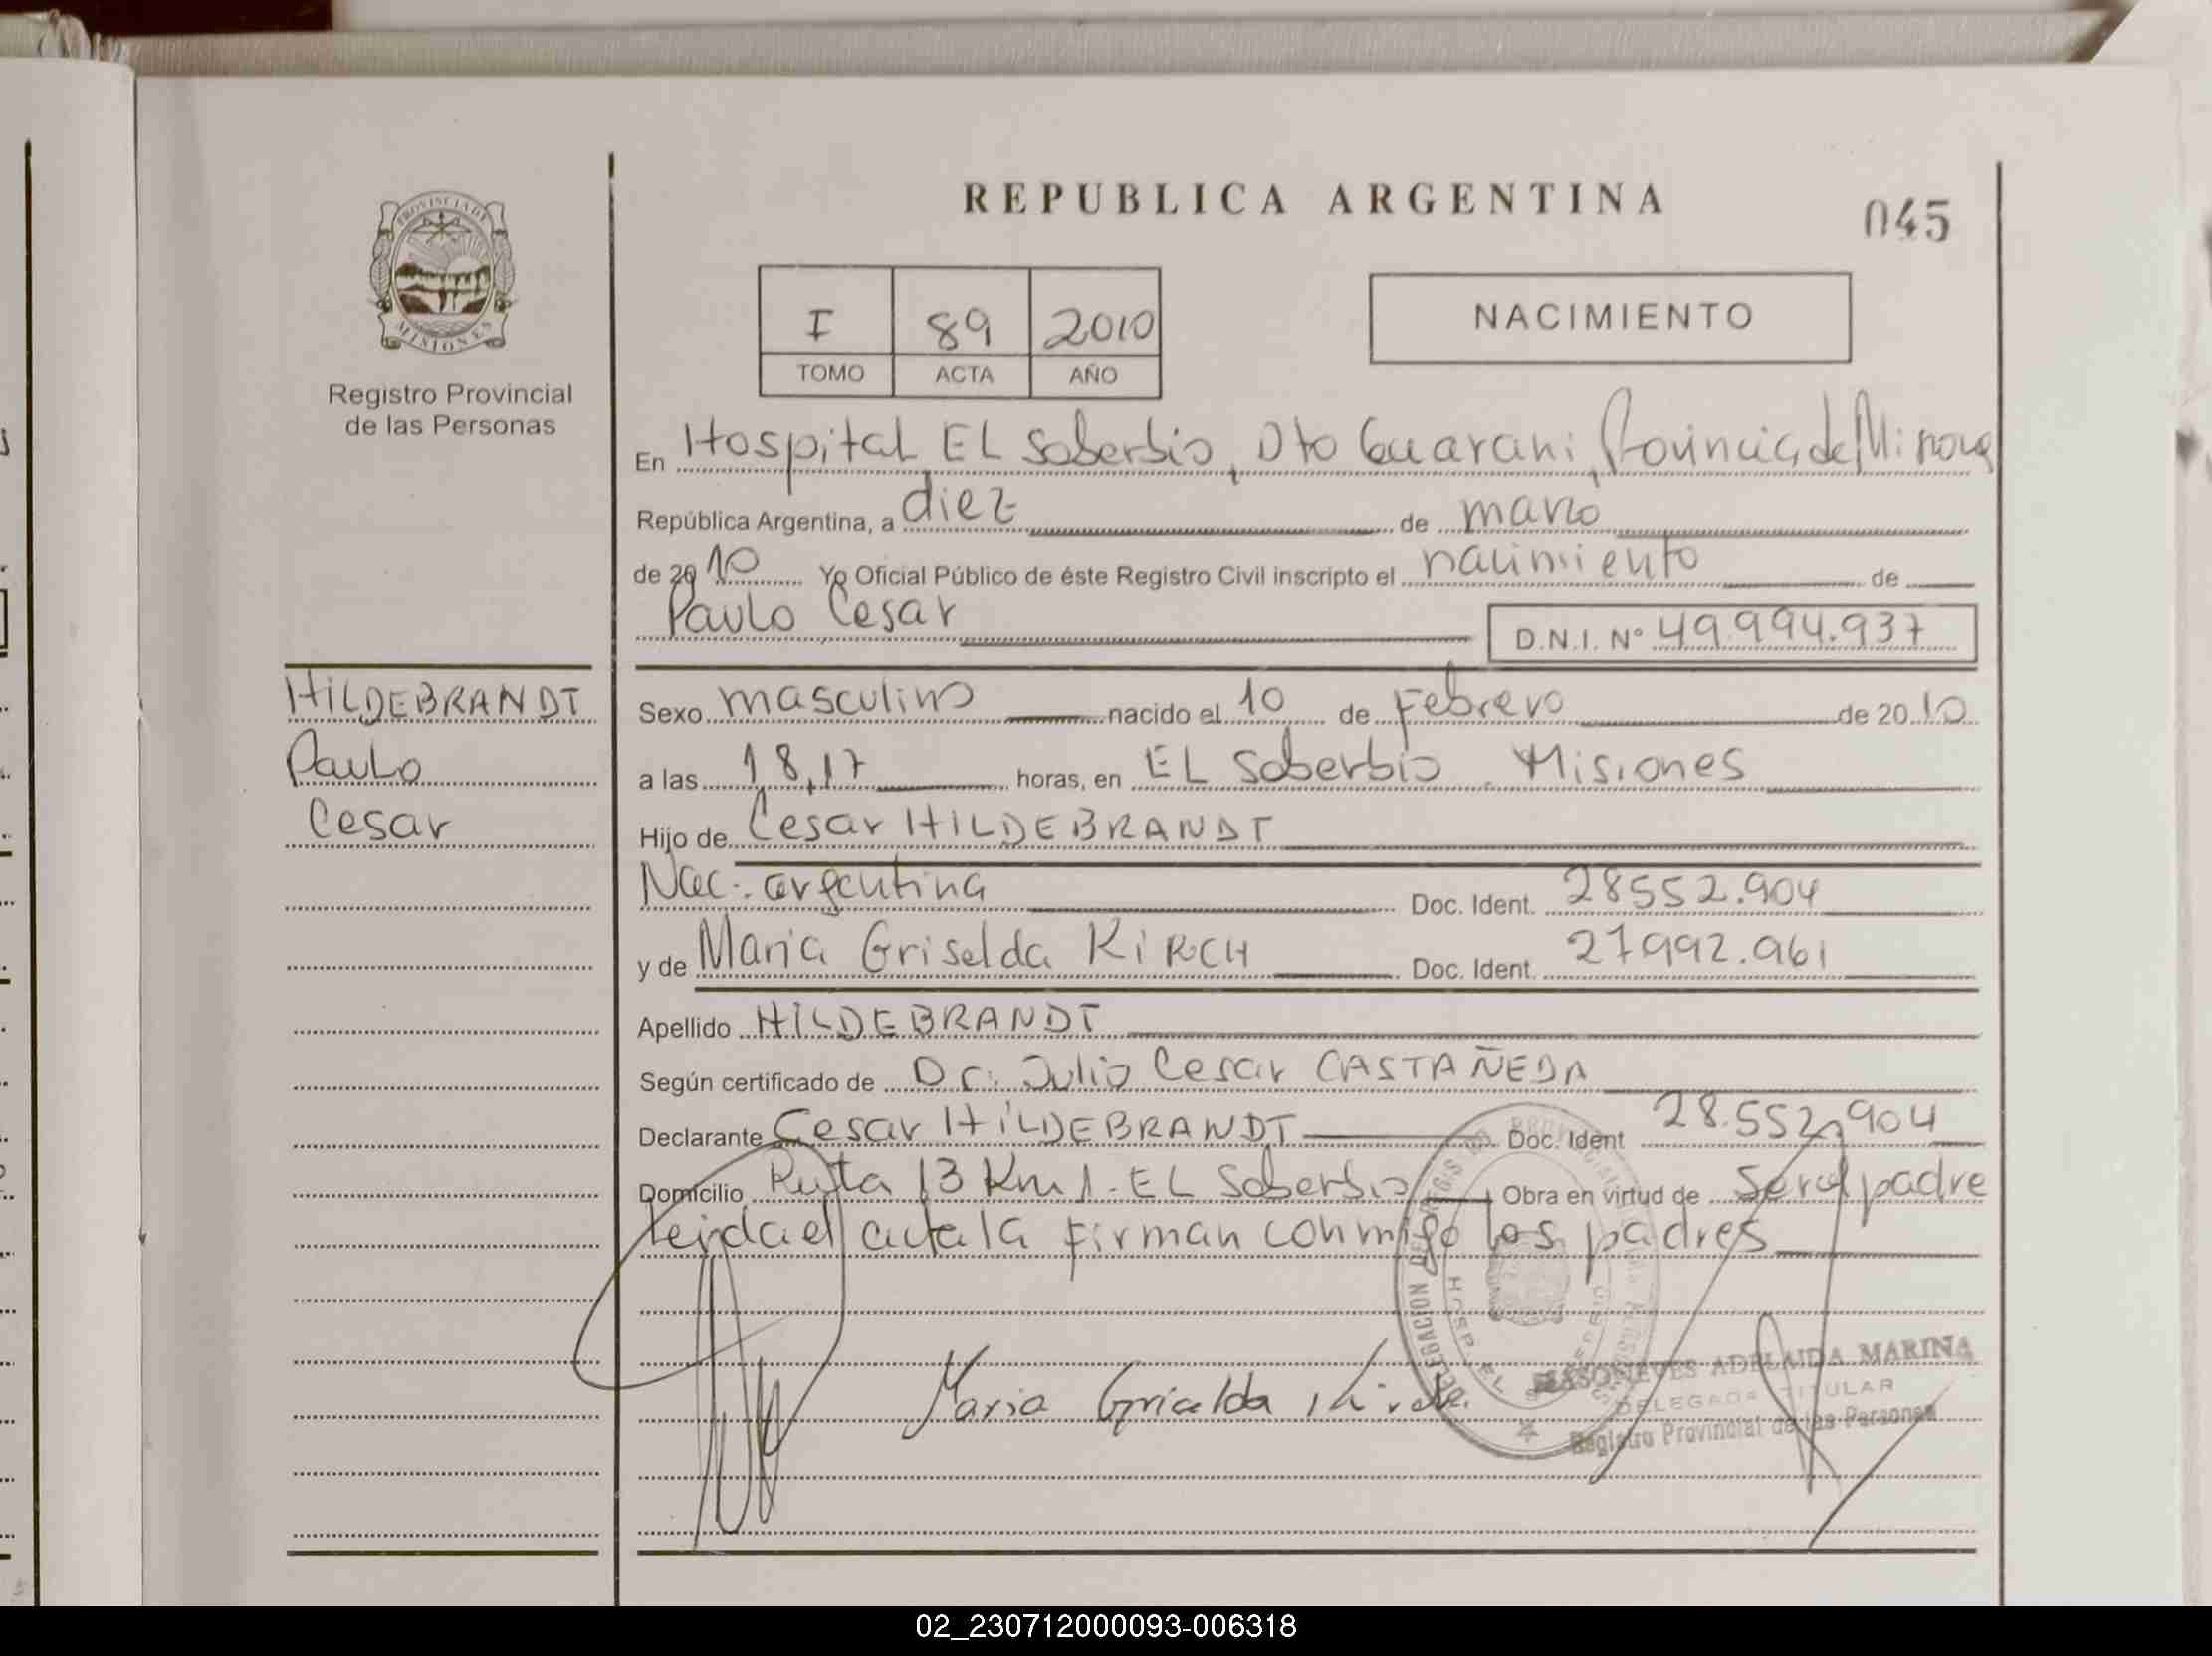 REPUBLICA ARGENTINA
045
PROVINCIA DE
MISIONES
Registro Provincial
de las Personas
I 89 2010
TOMO ACTA AÑO
NACIMIENTO
En Hospital EL Soberbio, Dto Guarani, Provincia de Misiones
República Argentina, a diez de marzo
de 2010 Yo Oficial Público de éste Registro Civil inscripto el nacimiento de
Paulo Cesar D.N.I. Nº 49.994.937
HILDEBRANDT
Paulo
Cesar
Sexo masculino nacido el 10 de Febrero de 2010
a las 18,17 horas, en EL Soberbio. Misiones
Hijo de Cesar HILDEBRANDT
Nac. argentina Doc. Ident. 28552.904
y de Maria Griselda KIRCH Doc. Ident. 27992.961
Apellido HILDEBRANDT
Según certificado de Dr. Julio Cesar CASTAÑEDA
Declarante Cesar HILDEBRANDT Doc. Ident 28.552.904
Domicilio Ruta 13 Km 1. EL Soberbio Obra en virtud de ser el padre
leida el acta la firman conmigo los padres
DELEGACION DEL REGISTRO PROVINCIAL
HOSP. EL SOBERBIO
Maria Griselda Kirch
ADELAIDA MARINA
DELEGADA TITULAR
Registro Provincial de las Personas
02_230712000093-006318